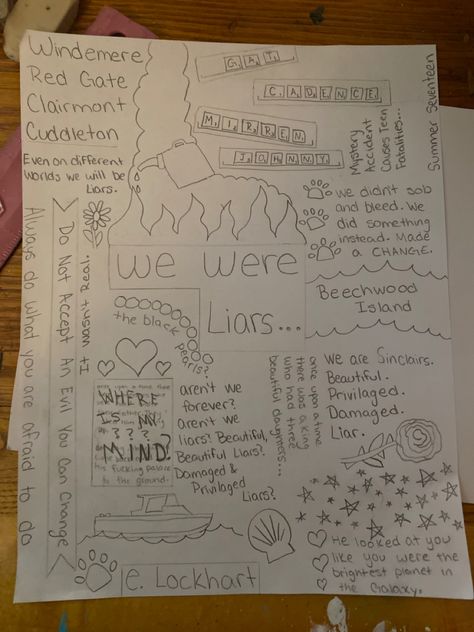 Windemere
Red Gate
Clairmont
Cuddleton
Even on different
worlds we will be
Liars.
GAT
CADENCE
MIRREN
JOHNNY
Mystery
Accident
Causes Teen
Fatalities...
Summer Seventeen
we didn't sob
and bleed. We
did something
instead. Made
a CHANGE.
Always do what you are afraid to do
Do Not Accept An Evil You Can Change
It wasn't Real.
we were
Liars...
Beechwood
Island
the black
pearls?
once upon a time there
WHERE
IS MY
? ? ? ?
MIND
his fucking palace
to the ground.
aren't we
forever?
aren't we
liars? Beautiful,
Beautiful Liars?
Damaged &
Privilaged
Liars?
once upon a time
there was a king
who had three
beautiful daughters...
we are Sinclairs.
Beautiful.
Privilaged.
Damaged.
Liar.
He looked at you
like you were the
brightest planet in
the Galaxy.
e. Lockhart